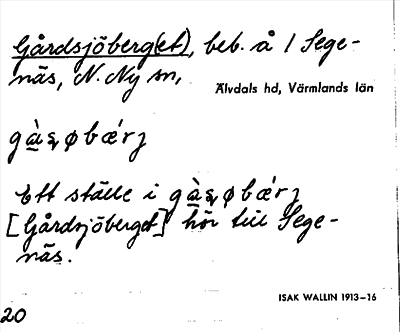 Gårdsjöberg(et), beb. å 1 Sege-
näs, N. Ny sn,
Älvdals hd, Värmlands län
gàꞩøbǽrʒ
Ett ställe i gàꞩøbǽrʒ
[Gårdsjöberget] hör till Sege-
näs.
ISAK WALLIN 1913–16
20